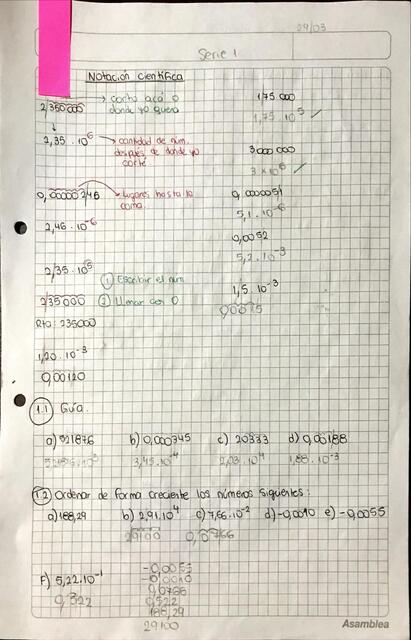 29/03
Serie 1
Notación científica
2,350000 → corto acá o donde yo quera
2,35 · 10⁶ → cantidad de núm. después de donde yo corté
1,75 000
1,75 · 10⁵ ✓
3000 000
3 × 10⁶ ✓
0,00000 246 → lugares hasta la coma.
2,46 · 10⁻⁶
0,0000051
5,1 · 10⁻⁶
0,0052
5,2 · 10⁻³
2,35 · 10⁵
① Escribir el núm
235000 ② Llenar con 0
Rta: 235000
1,5 · 10⁻³
0,0015
1,20 · 10⁻³
0,00120
1.1 Guía.
a) 521876 b) 0,000345 c) 20333 d) 0,00188
3,45 · 10⁻⁴ 2,03 · 10⁴ 1,88 · 10⁻³
1.2 Ordenar de forma creciente los números siguientes:
a) 188,29 b) 2,91 · 10⁴ c) 7,66 · 10⁻² d) -0,0010 e) -0,0055
29100 0,0766
F) 5,22 · 10⁻¹
0,522
-0,0055
-0,0010
0,0766
0,522
188,29
29100
Asamblea